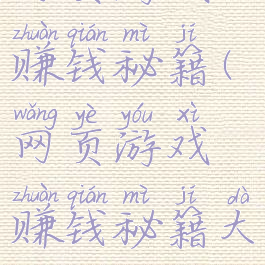 zhuàn qián mì jí
赚钱秘籍(
wǎng yè yóu xì
网页游戏
zhuàn qián mì jí dà
赚钱秘籍大